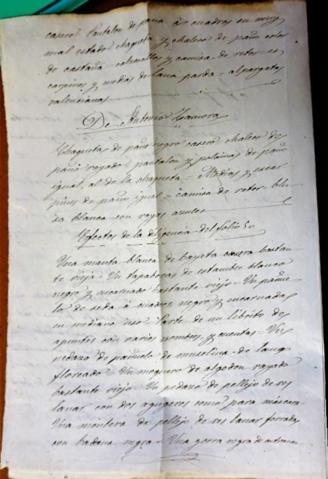 casera Pantalon de pana à cuadros en muy
mal estado chaqueta y chaleco de paño color
de castaña calzoncillos y camisa de retor es-
carpines y medias de lana parda - alpargatas
valencianas
De Antonio Zamora
Chaqueta de paño negro casero chaleco de
paño rayado, pantalon y polainas de paño
igual, al de la chaqueta - Medias y escar
pines de paño igual - camisa de retor blu
sa blanca con rayas azules
Efectos de la diligencia del folio 50
Una manta blanca de bayeta casera bastan
te vieja - Un tapabocas de estambre blanco
negro y encarnado bastante viejo - Un pañue
lo de seda à cuadros negro y encarnado
en mediano uso - Parte de un librito de
apuntes con varios nombres y cuentas - Un
pedazo de pañuelo de muselina de lana
floreada - Un moquero de algodon rayado
bastante viejo - Un pedazo de pellejo de res
lanar con dos agugeros como para máscara
Una montera de pellejo de res lanar forrada
con badana negra - Una gorra negra de